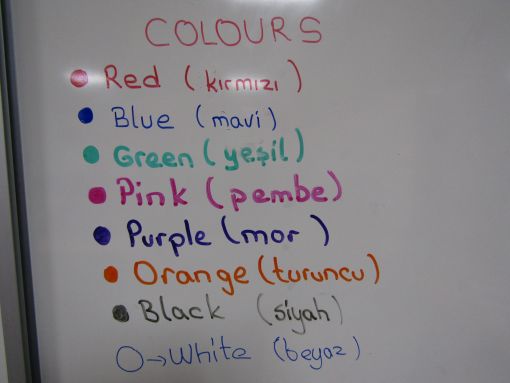 COLOURS
Red (kırmızı)
Blue (mavi)
Green (yeşil)
Pink (pembe)
Purple (mor)
Orange (turuncu)
Black (siyah)
→ White (beyaz)